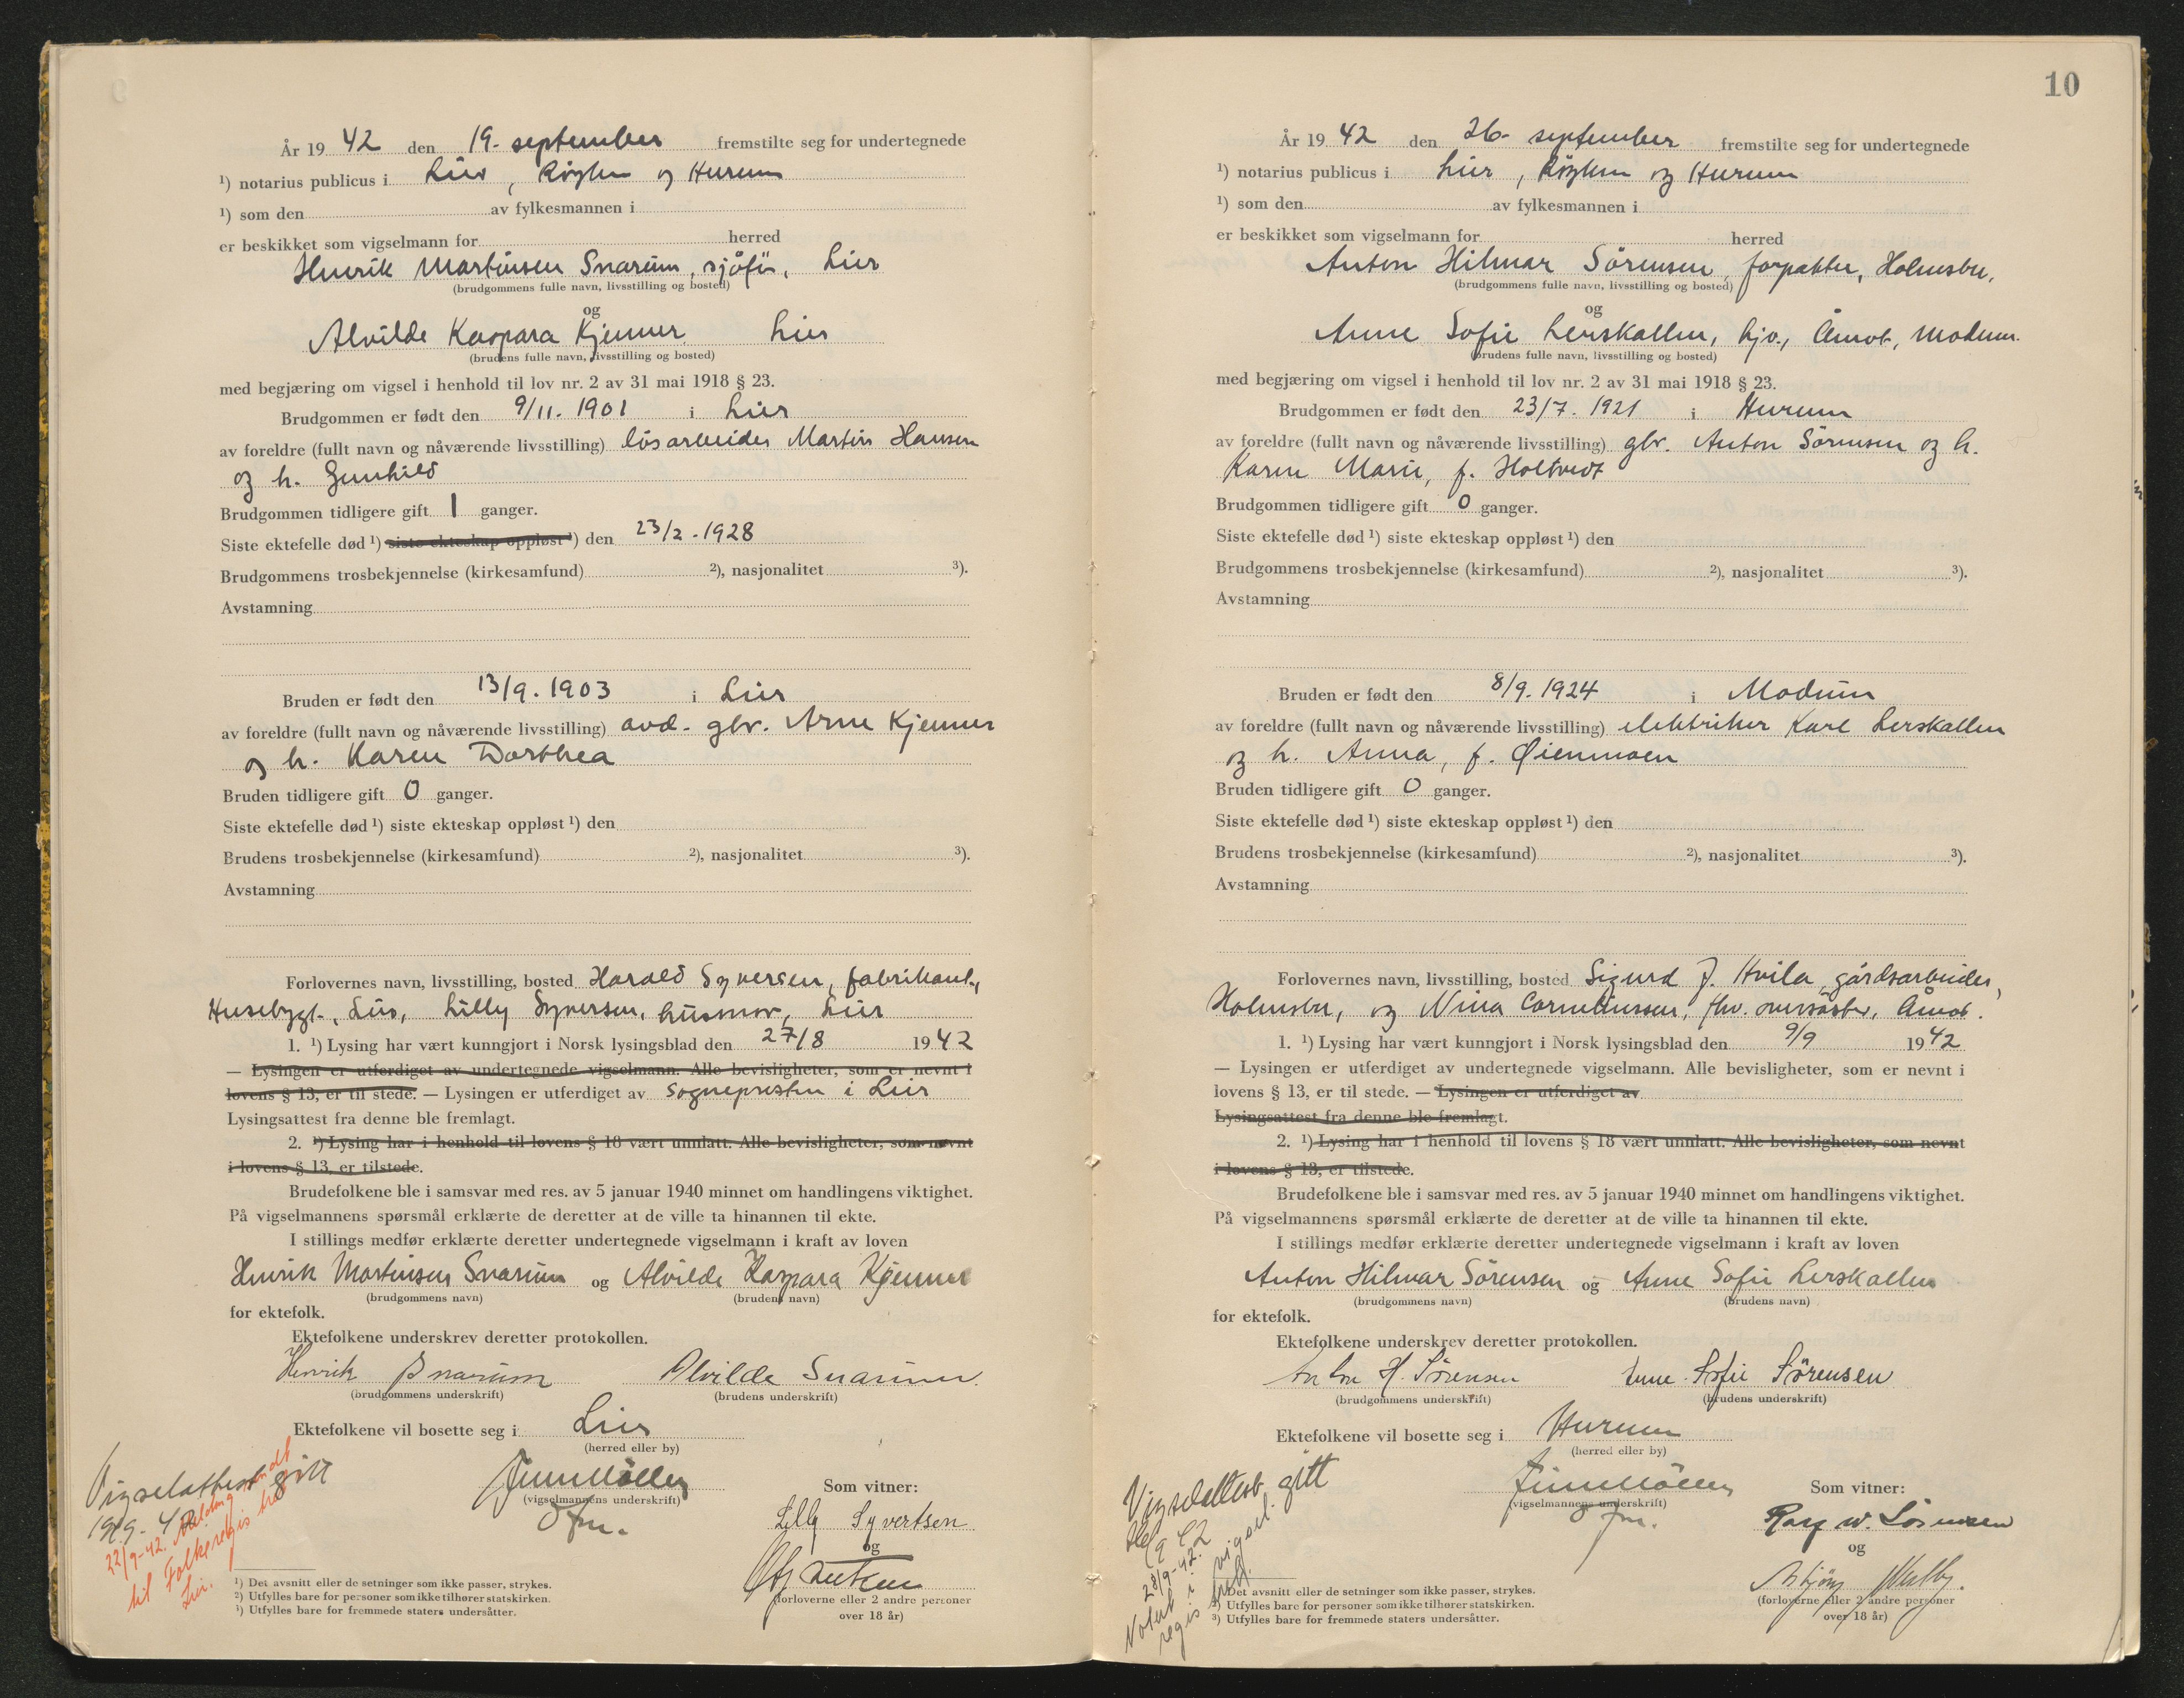 År 19 42 den 19. september fremstilte seg for undertegnede
¹) notarius publicus i Lier, Röyken og Hurum
¹) som den av fylkesmannen i
er beskikket som vigselmann for herred
Henrik Martinsen Snarum, sjåför, Lier
(brudgommens fulle navn, livsstilling og bosted)
og
Alvilde Kaspara Kjenner Lier
(brudens fulle navn, livsstilling og bosted)
med begjæring om vigsel i henhold til lov nr. 2 av 31 mai 1918 § 23.
Brudgommen er født den 9/11. 1901 i Lier
av foreldre (fullt navn og nåværende livsstilling) lösarbeider Martin Hansen
og h. Gunhild
Brudgommen tidligere gift 1 ganger.
Siste ektefelle død ¹) siste ekteskap oppløst ¹) den 23/2. 1928
Brudgommens trosbekjennelse (kirkesamfund) ²), nasjonalitet ³).
Avstamning
Bruden er født den 13/9. 1903 i Lier
av foreldre (fullt navn og nåværende livsstilling) avd. gbr. Arne Kjenner
og h. Karen Dorthea
Bruden tidligere gift 0 ganger.
Siste ektefelle død ¹) siste ekteskap oppløst ¹) den
Brudens trosbekjennelse (kirkesamfund) ²), nasjonalitet ³).
Avstamning
Forlovernes navn, livsstilling, bosted Harald Syversen, fabrikant,
Husebygt., Lier, Lilly Syversen, husmor, Lier
1. ¹) Lysing har vært kunngjort i Norsk lysingsblad den 27/8 1942
— Lysingen er utferdiget av undertegnede vigselmann. Alle bevisligheter, som er nevnt i
lovens § 13, er til stede. — Lysingen er utferdiget av sognepresten i Lier
Lysingsattest fra denne ble fremlagt.
2. ¹) Lysing har i henhold til lovens § 18 vært unnlatt. Alle bevisligheter, som nevnt
i lovens § 13, er tilstede.
Brudefolkene ble i samsvar med res. av 5 januar 1940 minnet om handlingens viktighet.
På vigselmannens spørsmål erklærte de deretter at de ville ta hinannen til ekte.
I stillings medfør erklærte deretter undertegnede vigselmann i kraft av loven
Henrik Martinsen Snarum og Alvilde Kaspara Kjenner
(brudgommens navn) (brudens navn)
for ektefolk.
Ektefolkene underskrev deretter protokollen.
Henrik Snarum Alvilde Snarum.
(brudgommens underskrift) (brudens underskrift)
Ektefolkene vil bosette seg i Lier
(herred eller by)
Vigselattest gitt
19/9-42
22/9-42. Melding sendt
til Folkeregistret
Lier.
(vigselmannens underskrift)
Som vitner:
Lilly Syvertsen
og
(forloverne eller 2 andre personer
over 18 år)
¹) Det avsnitt eller de setninger som ikke passer, strykes.
²) Utfylles bare for personer som ikke tilhører statskirken.
³) Utfylles bare for fremmede staters undersåtter.
10
År 19 42 den 26. september fremstilte seg for undertegnede
¹) notarius publicus i Lier, Röyken og Hurum
¹) som den av fylkesmannen i
er beskikket som vigselmann for herred
Anton Hilmar Sörensen, forpakter, Holmsbu,
(brudgommens fulle navn, livsstilling og bosted)
og
Anne Sofie Lerskallen, hjv., Åmot, Modum.
(brudens fulle navn, livsstilling og bosted)
med begjæring om vigsel i henhold til lov nr. 2 av 31 mai 1918 § 23.
Brudgommen er født den 23/7. 1921 i Hurum
av foreldre (fullt navn og nåværende livsstilling) gbr. Anton Sörensen og h.
Karen Marie, f. Holtvedt
Brudgommen tidligere gift 0 ganger.
Siste ektefelle død ¹) siste ekteskap oppløst ¹) den
Brudgommens trosbekjennelse (kirkesamfund) ²), nasjonalitet ³).
Avstamning
Bruden er født den 8/9. 1924 i Modum
av foreldre (fullt navn og nåværende livsstilling) elektriker Karl Lerskallen
og h. Anna, f. Øienmoen
Bruden tidligere gift 0 ganger.
Siste ektefelle død ¹) siste ekteskap oppløst ¹) den
Brudens trosbekjennelse (kirkesamfund) ²), nasjonalitet ³).
Avstamning
Forlovernes navn, livsstilling, bosted Sigurd J. Hvila, gårdsarbeider,
Holmsbu, og Nina Corneliussen, fhv. oversöster, Åmot.
1. ¹) Lysing har vært kunngjort i Norsk lysingsblad den 9/9 1942
— Lysingen er utferdiget av undertegnede vigselmann. Alle bevisligheter, som er nevnt i
lovens § 13, er til stede. — Lysingen er utferdiget av
Lysingsattest fra denne ble fremlagt.
2. ¹) Lysing har i henhold til lovens § 18 vært unnlatt. Alle bevisligheter, som nevnt
i lovens § 13, er tilstede.
Brudefolkene ble i samsvar med res. av 5 januar 1940 minnet om handlingens viktighet.
På vigselmannens spørsmål erklærte de deretter at de ville ta hinannen til ekte.
I stillings medfør erklærte deretter undertegnede vigselmann i kraft av loven
Anton Hilmar Sörensen og Anne Sofie Lerskallen
(brudgommens navn) (brudens navn)
for ektefolk.
Ektefolkene underskrev deretter protokollen.
Anton H. Sörensen Anne Sofie Sörensen
(brudgommens underskrift) (brudens underskrift)
Ektefolkene vil bosette seg i Hurum
(herred eller by)
Vigselattest gitt
28/9-42.
Notert i vigsel
regis tret.
(vigselmannens underskrift)
Som vitner:
og
(forloverne eller 2 andre personer
over 18 år)
¹) Det avsnitt eller de setninger som ikke passer, strykes.
²) Utfylles bare for personer som ikke tilhører statskirken.
³) Utfylles bare for fremmede staters undersåtter.